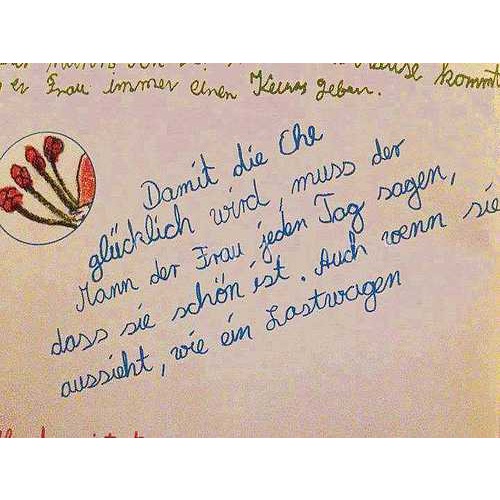 kommt
er Frau immer einen Kuss geben.
Damit die Ehe
glücklich wird, muss der
Mann der Frau jeden Tag sagen,
dass sie schön ist. Auch wenn sie
aussieht, wie ein Lastwagen